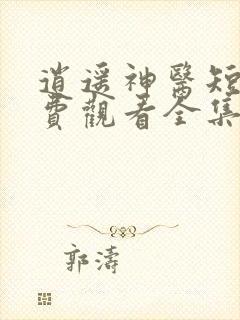 逍遥神醫短
費觀看全集
郭濤